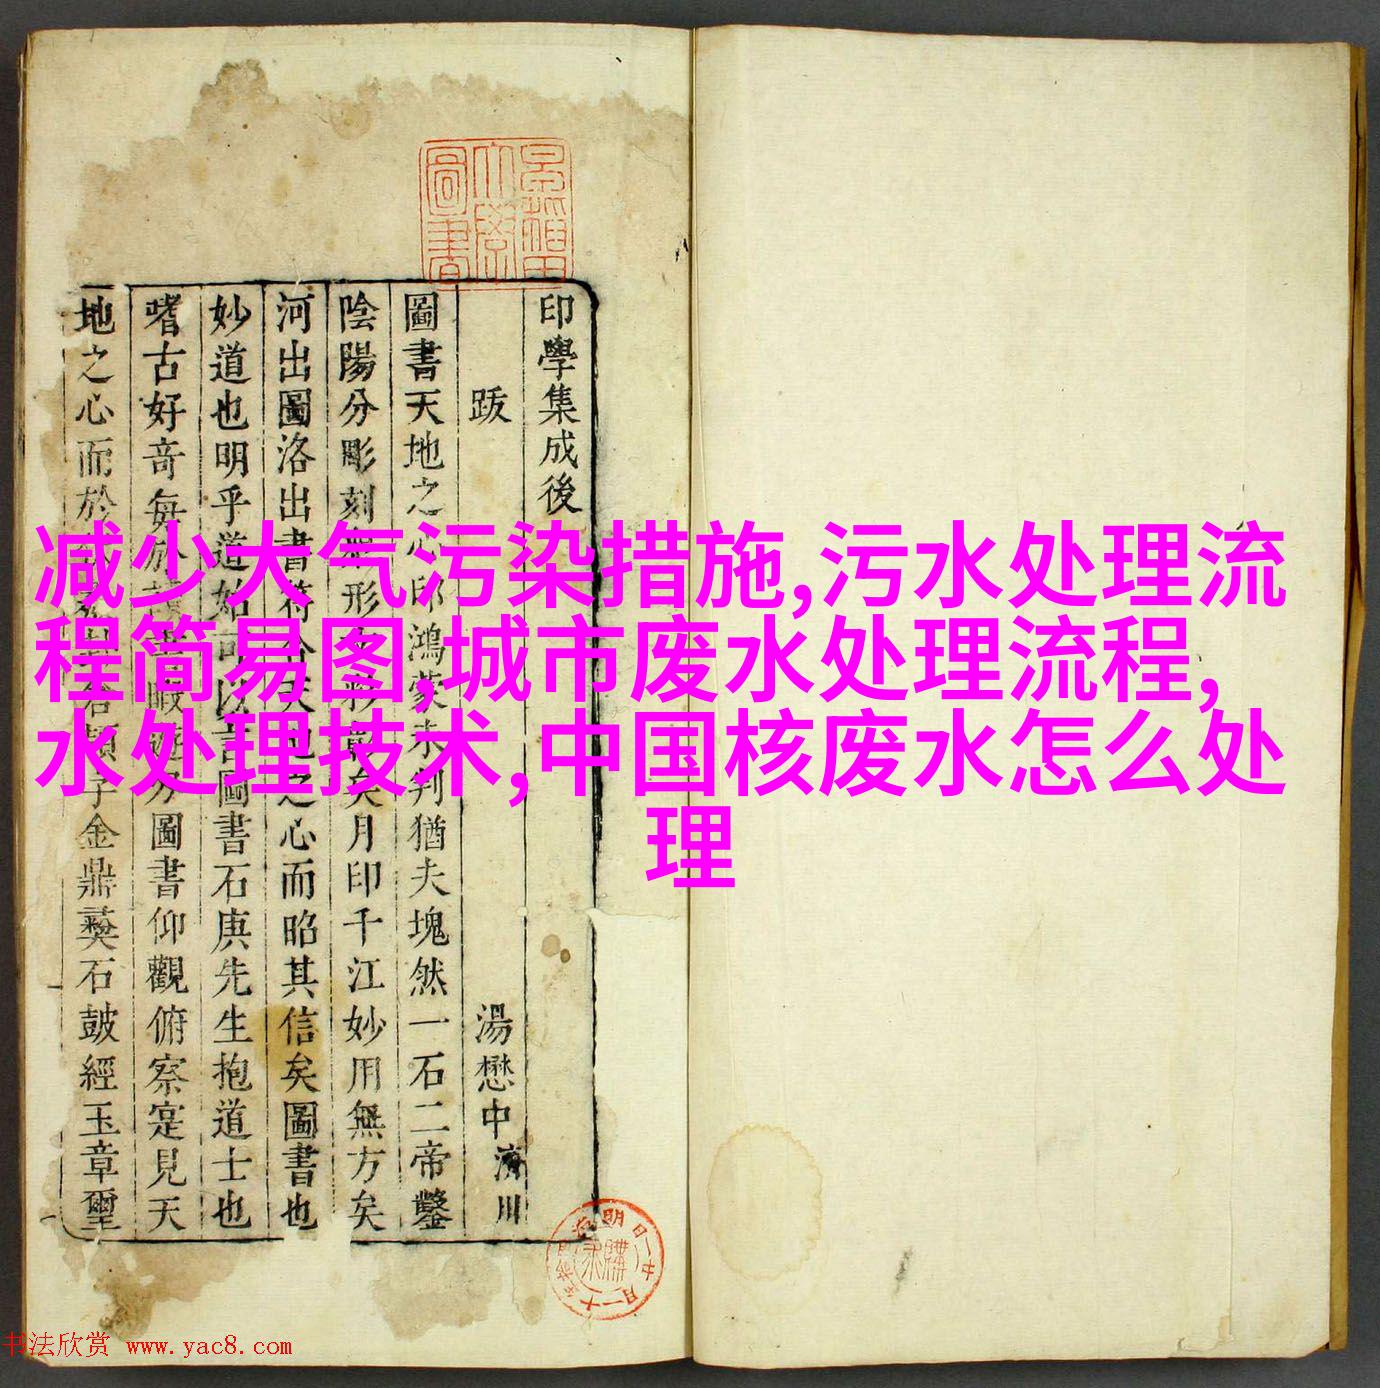 減少大气污染措施,污水处理流
程简易图,城市废水处理流程,
水处理技术,中国核废水怎么处
理
印學集成後
跋
湯懋中 濟川
圖書天地之心即鴻蒙未判猶夫塊然一石二帝鑿
陰陽分彫刻 形 矣月印千江妙用無方矣
河出圖洛出書符 之心而昭其信矣圖書也
妙道也明乎道始可以言圖書石庚先生抱道士也
嗜古好竒每於 圖書仰觀俯察寔見天
地之心而於 子金鼎彛石鼓經玉章璽
書法欣赏 www.yac8.com